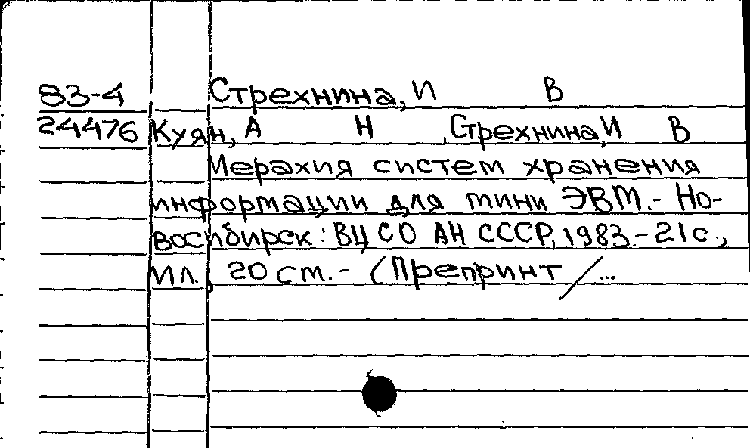 83-4 Стрехнина, И В
24476 Куян, А Н , Стрехнина, И В
Иерахия систем хранения
информации для мини ЭВМ.- Но-
восибирск: ВЦ СО АН СССР, 1983.-21с.,
ил. 20 см.- (Препринт /...